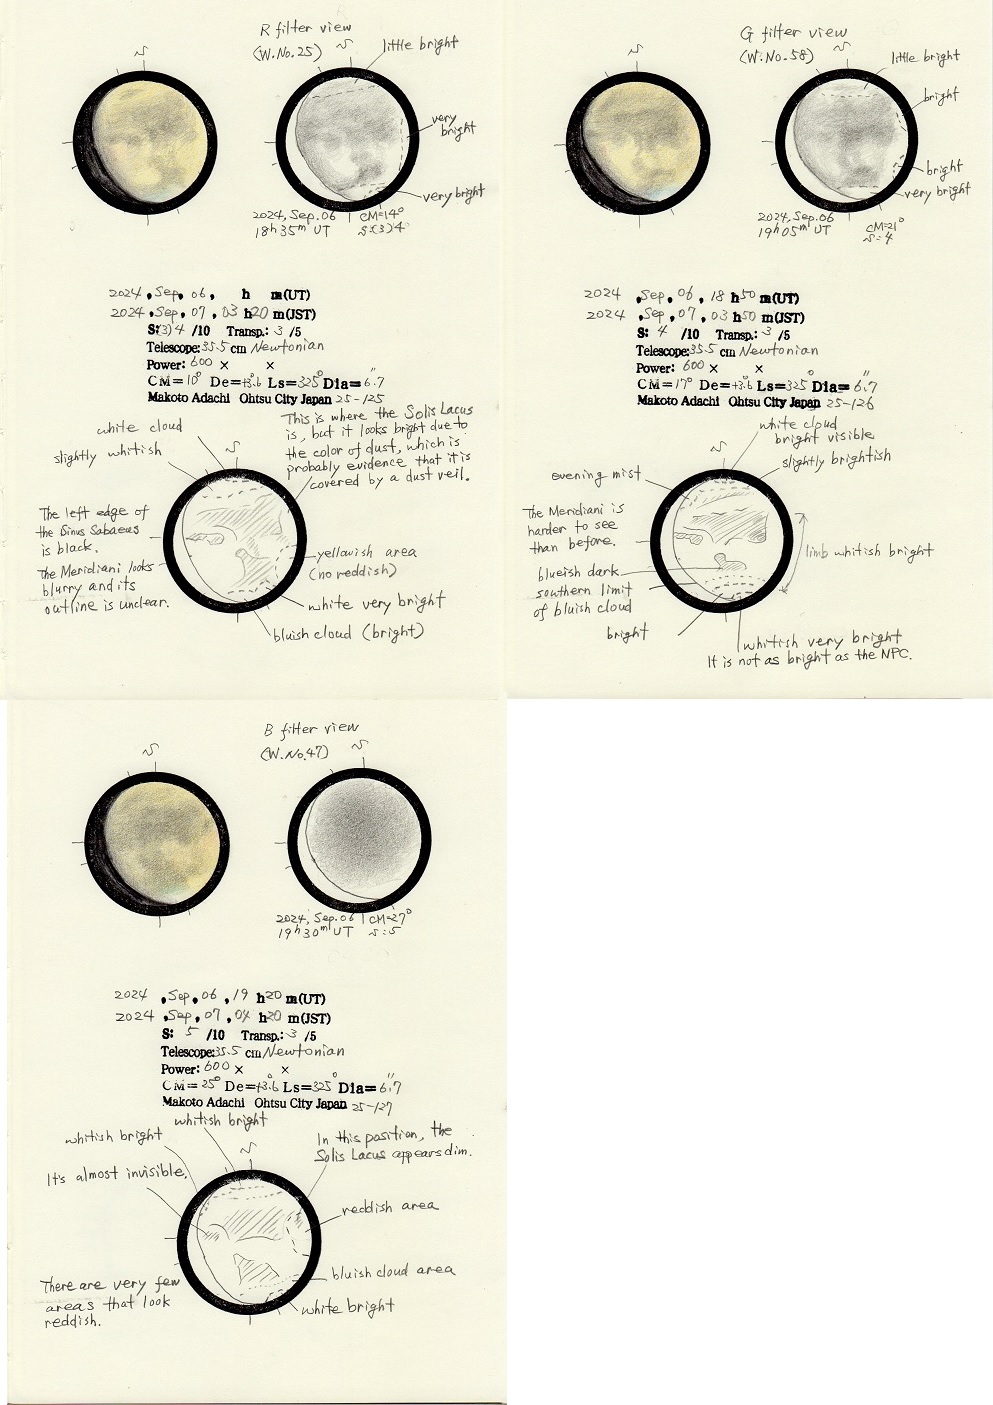 R filter view
(W.No.25)
S
S
little bright
very bright
very bright
2024, Sep. 06
18h 35m UT
CM=14°
S:(3)4
2024, Sep, 06, h m(UT)
2024, Sep, 07, 03 h20 m(JST)
S:(3)4 /10 Transp.: 3 /5
Telescope:35.5 cm Newtonian
Power: 600 × ×
CM=10° De=+3.6° Ls=325° Dia=6".7
Makoto Adachi Ohtsu City Japan 25-125
white cloud
slightly whitish
S
This is where the Solis Lacus
is, but it looks bright due to
the color of dust, which is
probably evidence that it is
covered by a dust veil.
The left edge of
the Sinus Sabaeus
is black.
The Meridiani looks
blurry and its
outline is unclear.
yellowish area
(no reddish)
white very bright
bluish cloud (bright)
G filter view
(W.No.58)
S
S
little bright
bright
bright
very bright
2024, Sep.06
19h 05m UT
CM=21°
S=4
2024, Sep, 06, 18 h50 m(UT)
2024, Sep, 07, 03 h50 m(JST)
S: 4 /10 Transp.: 3 /5
Telescope:35.5 cm Newtonian
Power: 600 × ×
CM=17° De=+3.6° Ls=325° Dia=6".7
Makoto Adachi Ohtsu City Japan 25-126
S
white cloud
bright visible
slightly brightish
evening mist
The Meridiani is
harder to see
than before.
blueish dark
southern limit
of bluish cloud
bright
limb whitish bright
whitish very bright
It is not as bright as the NPC.
B filter view
(W.No.47)
S
S
2024, Sep.06
19h 30m UT
CM=27°
S:5
2024, Sep, 06, 19 h20 m(UT)
2024, Sep, 07, 04 h20 m(JST)
S: 5 /10 Transp.: 3 /5
Telescope:35.5 cm Newtonian
Power: 600 × ×
CM=25° De=+3.6° Ls=325° Dia=6".7
Makoto Adachi Ohtsu City Japan 25-127
whitish bright
whitish bright
S
In this position, the
Solis Lacus appears dim.
It's almost invisible.
reddish area
bluish cloud area
white bright
There are very few
areas that look
reddish.